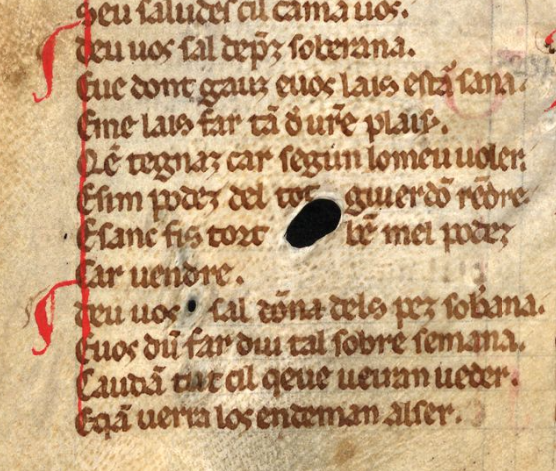 Seu saludes cil cama uos.
deu uos sal deprz soberana.
Eue dont gauz euos lais estar sana.
Eme lais far tā d̄ urē plais.
Qē tegnaz car segun lo meu uoler.
Esim podez del tot guierdō rēdre.
Esanc fis tort bē mel podez
Car uendre.
deu uos sal dōna dels pez sobana.
Euos dū far diu tal sobre semana.
Caudā tut cil qeue ueuran ueder.
Eqā uerra los endeman alser.